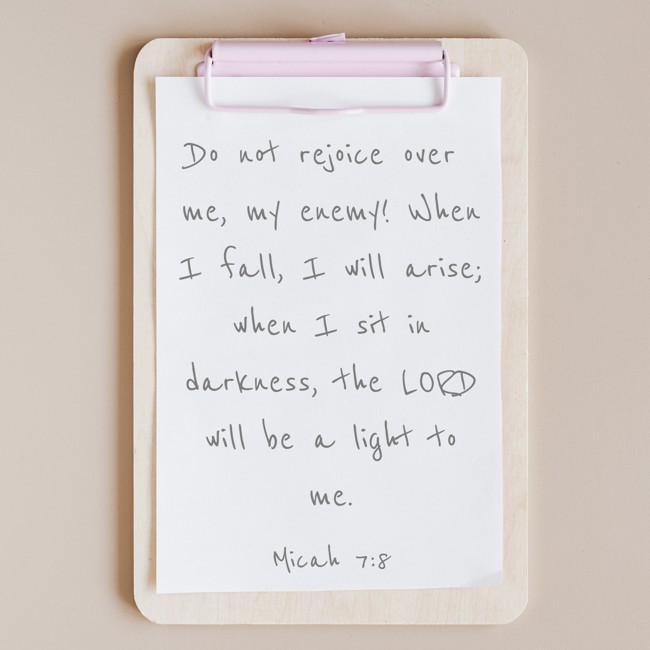 Do not rejoice over
me, my enemy! When
I fall, I will arise;
when I sit in
darkness, the LORD
will be a light to
me.
Micah 7:8